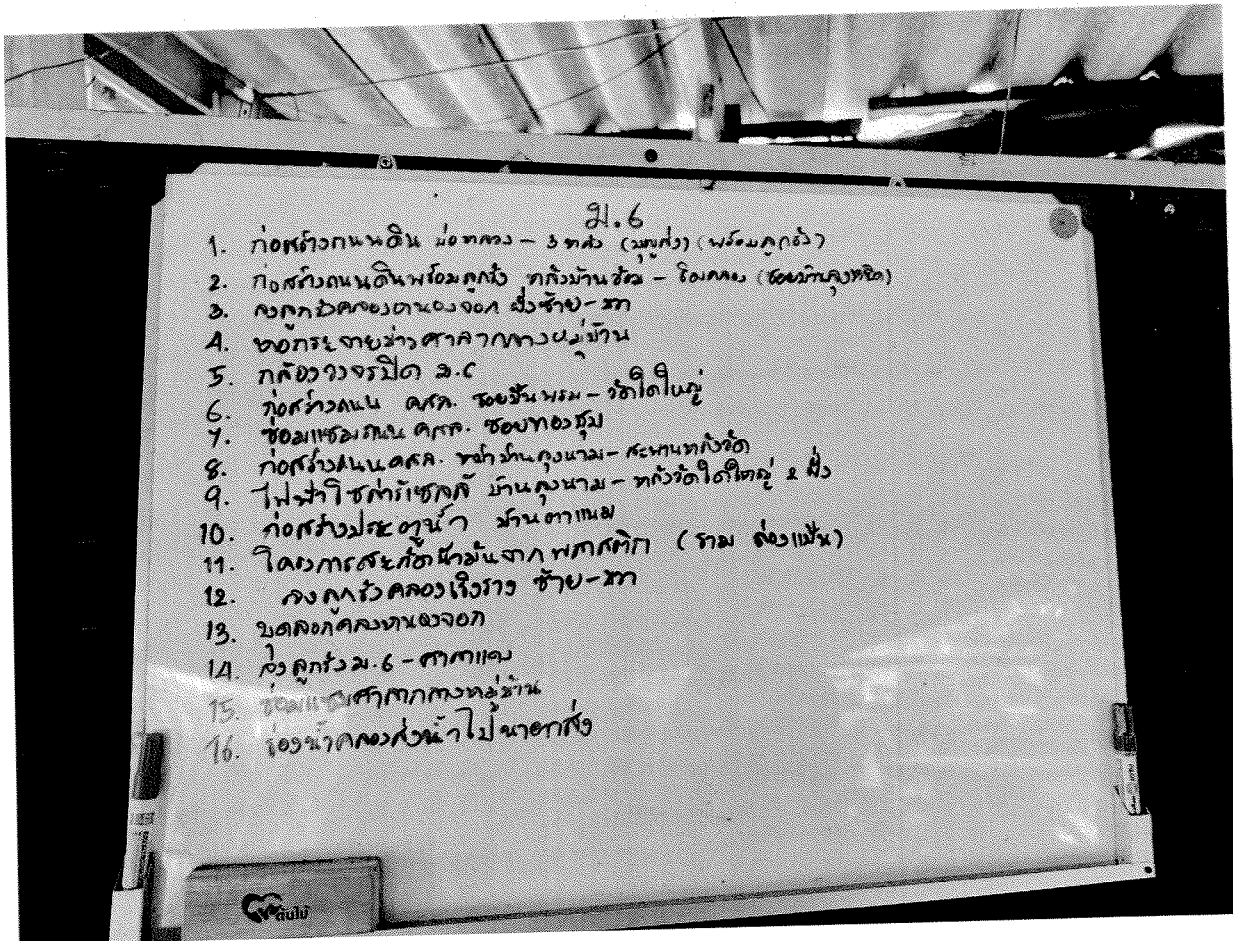 ม.6
1. ก่อสร้างถนนดิน บ่อหลวง - 3 หลัง (บุญส่ง) (พร้อมลูกรัง)
2. ก่อสร้างถนนดินพร้อมลูกรัง หลังบ้าน - ริมคลอง
3. ลงลูกรังคลองหนองจอก ฝั่งซ้าย-ขวา
4. หอกระจายข่าวศาลากลางหมู่บ้าน
5. กล้องวงจรปิด ม.6
6. ก่อสร้างถนน คสล. ซอยปั้นพรม - วัดใดใหญ่
7. ซ่อมแซมถนน คสล. ซอยทองชุม
8. ก่อสร้างถนน คสล. หน้าบ้านลุงนาม - สะพานหลังวัด
9. ไฟฟ้าโซล่าร์เซลล์ บ้านลุงนาม - หลังวัดใดใหญ่ 2 ฝั่ง
10. ก่อสร้างประตูน้ำ บ้านตาแนม
11. โครงการสะกัดน้ำมันจากพลาสติก
12. ลงลูกรังคลองเชิงราง ซ้าย-ขวา
13. ขุดลอกคลองหนองจอก
14. ลงลูกรัง ม.6 - ศาลาแดง
15. ซ่อมแซมศาลากลางหมู่บ้าน
16. ร่องน้ำคลองส่งน้ำไปนาตาส่ง
ต้นไม้